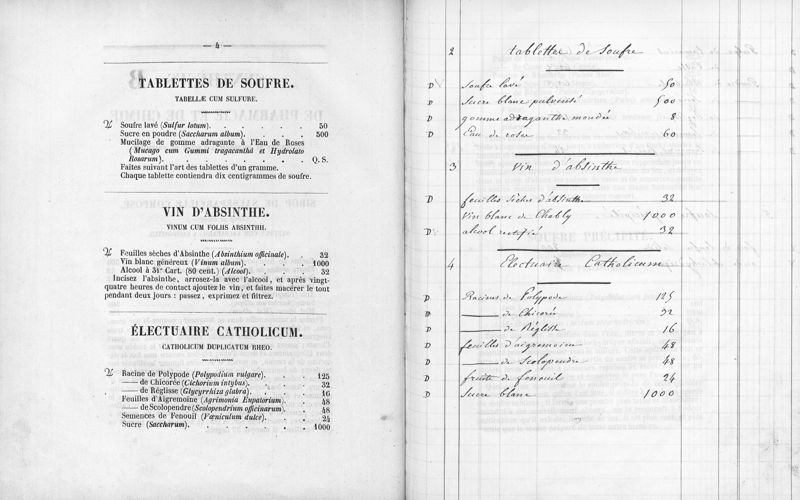 — 4 —
TABLETTES DE SOUFRE.
TABELLÆ CUM SULFURE.
Soufre lavé (Sulfur lotum). 50
Sucre en poudre (Saccharum album). 500
Mucilage de gomme adragante à l'Eau de Roses
(Mucago cum Gummi tragacantha et Hydrolato
Rosarum). Q. S.
Faites suivant l'art des tablettes d'un gramme.
Chaque tablette contiendra dix centigrammes de soufre.
VIN D'ABSINTHE.
VINUM CUM FOLIIS ABSINTHII.
Feuilles sèches d'Absinthe (Absinthium officinale). 32
Vin blanc généreux (Vinum album). 1000
Alcool à 31° Cart. (80 cent.) (Alcool). 32
Incisez l'absinthe, arrosez-la avec l'alcool, et après vingt-
quatre heures de contact ajoutez le vin, et faites macérer le tout
pendant deux jours : passez, exprimez et filtrez.
ÉLECTUAIRE CATHOLICUM.
CATHOLICUM DUPLICATUM RHEO.
Racine de Polypode (Polypodium vulgare). 125
— de Chicorée (Cichorium intybus). 32
— de Réglisse (Glycyrrhiza glabra). 16
Feuilles d'Aigremoine (Agrimonia Eupatorium). 48
— de Scolopendre (Scolopendrium officinarum). 48
Semences de Fenouil (Fœniculum dulce). 24
Sucre (Saccharum). 1000
2 tablettes de Soufre
D Soufre lavé 50
D Sucre blanc pulvérisé 500
D gomme adragante mondée 8
D Eau de rose 60
3 Vin d'absinthe
D feuilles sèches d'absinthe 32
Vin blanc de Chably 1000
D alcool rectifié 32
4 Electuaire Catholicum
D Racines de Polypode 125
D — de Chicorée 32
D — de Réglisse 16
D feuilles d'aigremoine 48
D — de Scolopendre 48
D fruits de fenouil 24
D Sucre blanc 1000